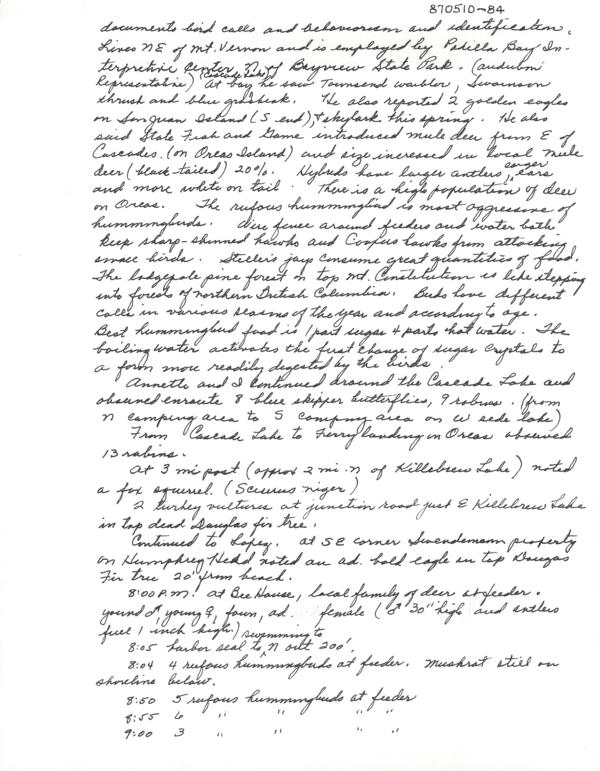 870510-84
documents bird calls and behaviorism and identification.
Lives NE of Mt. Vernon and is employed by Padilla Bay In-
terpretive Center, N. of Bayview State Park. (Audubon
Representative) (Cascade Lake) At bay he saw Townsend warbler, Swainson
thrush and blue grosbeak. He also reported 2 golden eagles
on San Juan Island (S end), & skylark this spring. He also
said State Fish and Game introduced mule deer from E of
Cascades. (on Orcas Island) and size increased in local mule
deer (black-tailed) 20%. Hybrids have larger antlers, larger ears
and more white on tail. There is a high population of deer
on Orcas. The rufous hummingbird is most aggressive of
hummingbirds. Wire fence around feeders and water bath
keep sharp-shinned hawks and Coopers hawks from attacking
small birds. Steller's jays consume great quantities of food.
The lodgepole pine forest on top Mt. Constitution is like stepping
into forests of northern British Columbia. Birds have different
calls in various seasons of the year and according to age.
Best hummingbird food is 1 part sugar 4 parts hot water. The
boiling water activates the first change of sugar crystals to
a form more readily digested by the birds.
Annette and I continued around the Cascade Lake and
observed enroute 8 blue skipper butterflies, 9 robins. (from
N camping area to S camping area on W side lake)
From Cascade Lake to Ferry landing on Orcas observed
13 robins.
At 3 mi post (approx 2 mi. N of Killebrew Lake) noted
a fox squirrel. (Sciurus niger)
2 turkey vultures at junction road just E Killebrew Lake
in top dead Douglas fir tree.
Continued to Lopez. At SE corner property
on Humphrey Head noted an ad. bald eagle in top Dougas
Fir tree 20' from beach.
8:00 P.M. at Bee House, local family of deer at feeder.
yound ♂, young ♀, fawn, ad. female (♂ 30" high and antlers
fuel 1 inch high.)
8:05 harbor seal swimming to N out 200'.
8:04 4 rufous hummingbirds at feeder. Muskrat still on
shoreline below.
8:50 5 rufous hummingbirds at feeder
8:55 6 " " " "
9:00 3 " " " "